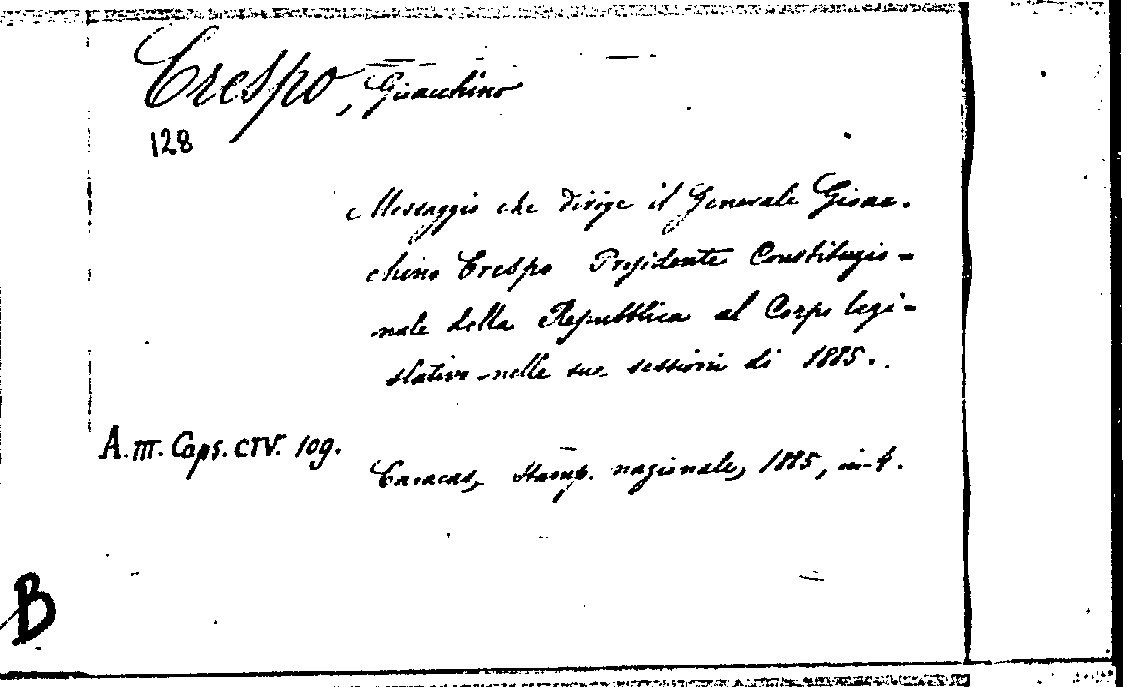 Crespo, Gioacchino
128
Messaggio che dirige il Generale Gioac-
chino Crespo Presidente Constituzio-
nale della Repubblica al Corpo legi-
slativo nelle sue sessioni di 1885.
A. III. Caps. CIV. 109.
Caracas, Stamp. nazionale, 1885, in-4.
B